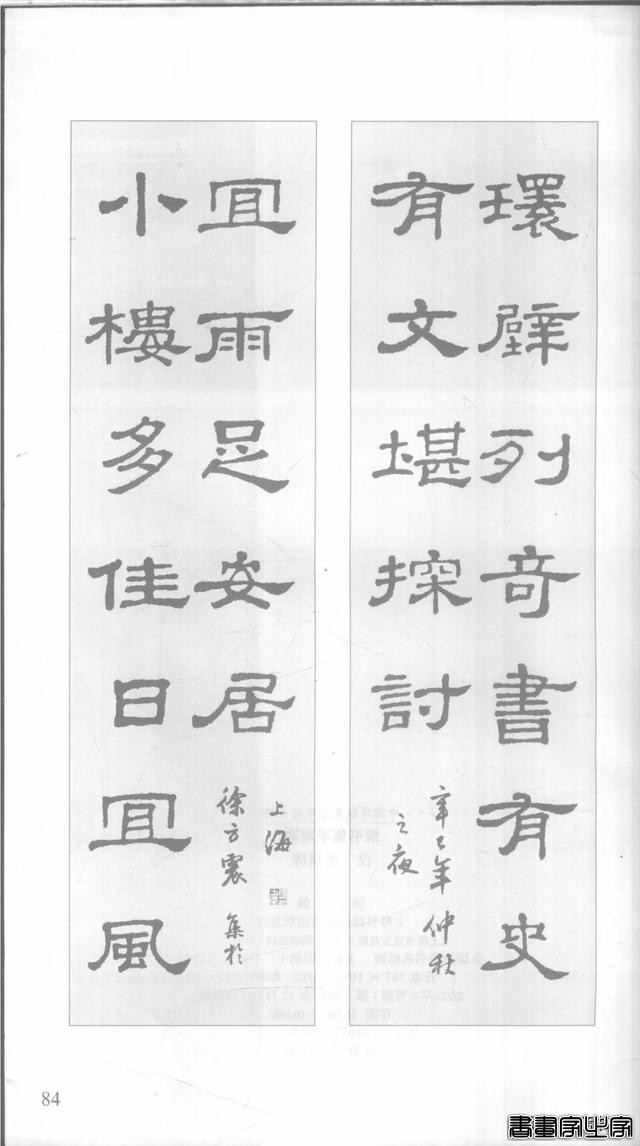 環壁列奇書有史
有文堪探討
辛巳年仲秋
之夜
小樓多佳日宜風
宜雨足安居
上海
徐方震集於
84
書畫家之家